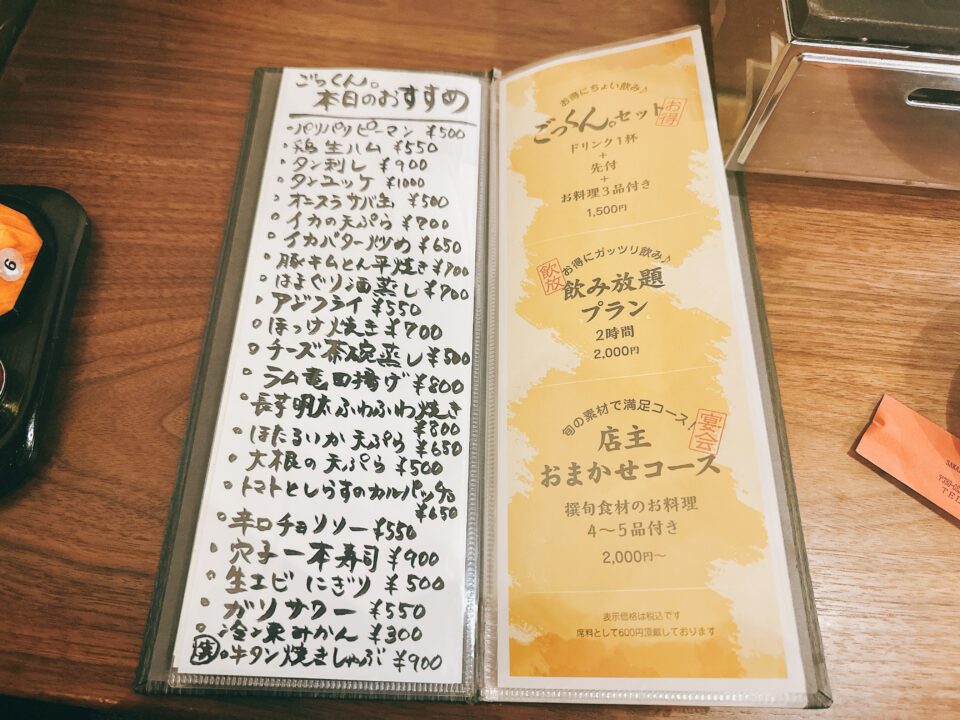 ごっくん。
本日のおすすめ
パリパリピーマン ¥500
鶏生ハム ¥550
タン刺し ¥900
タンユッケ ¥1000
オースラサバ缶 ¥500
イカの天ぷら ¥700
イカバター炒め ¥650
豚キムとん平焼き ¥700
はまぐり酒蒸し ¥700
アジフライ ¥550
ほっけ焼き ¥700
チーズ茶碗蒸し ¥500
ラム竜田揚げ ¥800
長芋明太ふわふわ焼き
¥800
ほたるいか天ぷら ¥650
大根の天ぷら ¥500
トマトとしらすのカルパッチョ
¥650
辛口チョリソー ¥550
穴子一本寿司 ¥900
生エビにぎり ¥500
ガリサワー ¥550
冷凍みかん ¥300
牛タン焼きしゃぶ ¥900
お得にちょい飲み♪
ごっくん。セット
お得
ドリンク1杯
+
先付
+
お料理3品付き
1,500円
お得にガッツリ飲み♪
飲放
飲み放題
プラン
2時間
2,000円
旬の素材で満足コース♪
宴会
店主
おまかせコース
撰旬食材のお料理
4〜5品付き
2,000円〜
表示価格は税込です
席料として600円頂戴しております
6